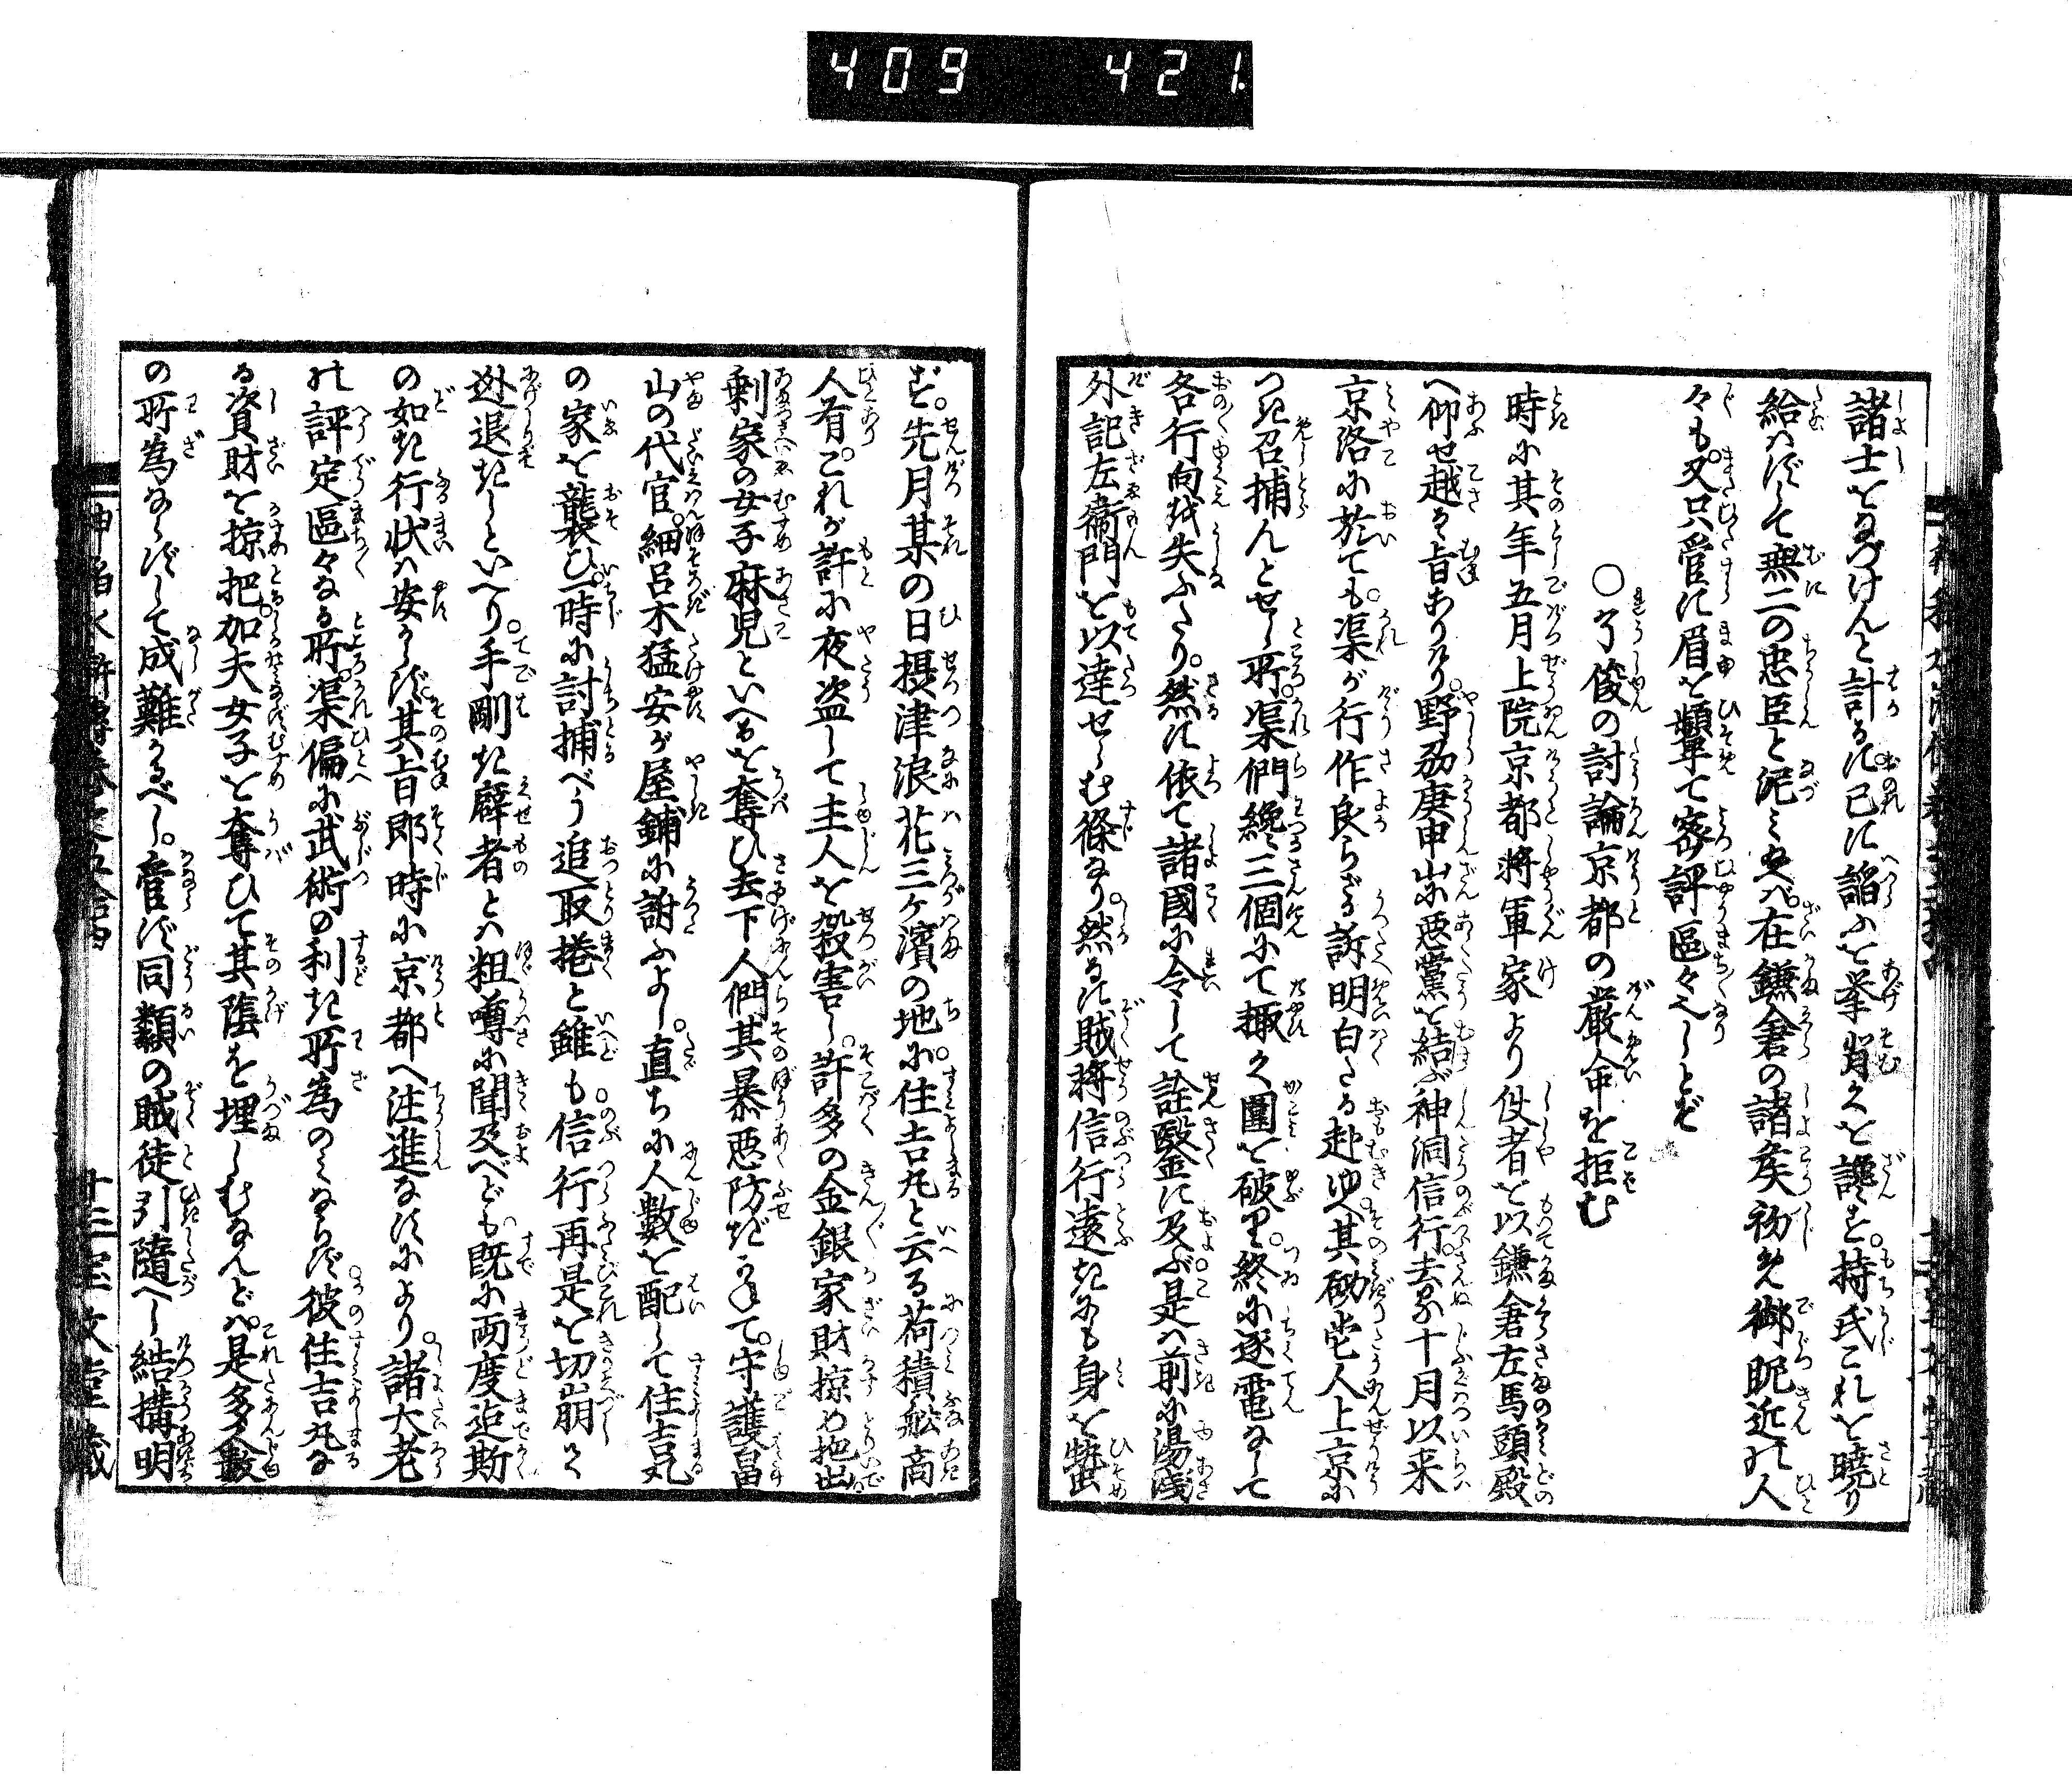 409 421
諸士をなづけんと計るに己に諂ふを挙背くを讒す。持氏これを暁り
給はずして無二の忠臣と泥み玉へば。在鎌倉の諸矦初め御昵近の人
々も。又只管に眉を顰て密評區々たりしとぞ
〇了俊の討論京都の厳命を拒む
時に其年五月上院京都將軍家より使者を以鎌倉左馬頭殿
へ仰せ越さる旨ありけり。野州庚申山に悪黨を結ぶ神洞信行。去る十月以来
京洛に於ても。渠が行作良らざる訴明白たる赴ゆへ。其砌堂人上京に
つき召捕んとせし所。渠們纔三個にて擒く圍を破り。終に逐電なして
各行向を失ふたり。然に依て諸國に令して詮鑿に及ぶ。是は前に湯浅
外記左衛門を以達せしむ條なり。然るに賊將信行遠きにも身を蟄
ず。先月某の日摂津浪花三ケ濱の地に。住吉丸と云る荷積舩商
人有。これが許に夜盗して主人を殺害し。許多の金銀家財掠め拖出。
剰家の女子麻児といへるを奪ひ去。下人們其暴悪防ぎかねて。守護畠
山の代官。細呂木猛安が屋鋪に訴ふよし。直ちに人數を配して住吉丸
の家を襲ひ。一時に討捕べう追取捲と雖も。信行再是を切崩して
迯退きしといへり。手剛き癖者とは粗噂に聞及べども。既に両度迄斯
の如き行状は安からず。其旨即時に京都へ注進なすにより。諸大老
の評定區々なる所。渠偏に武術の利き所為のみならず。彼住吉丸な
る資財を掠把。加夫女子を奪ひて其蔭を埋しむなんど。是多人數
の所為ならずして成難かるべし。管ず同類の賊徒引隨へし結搆明